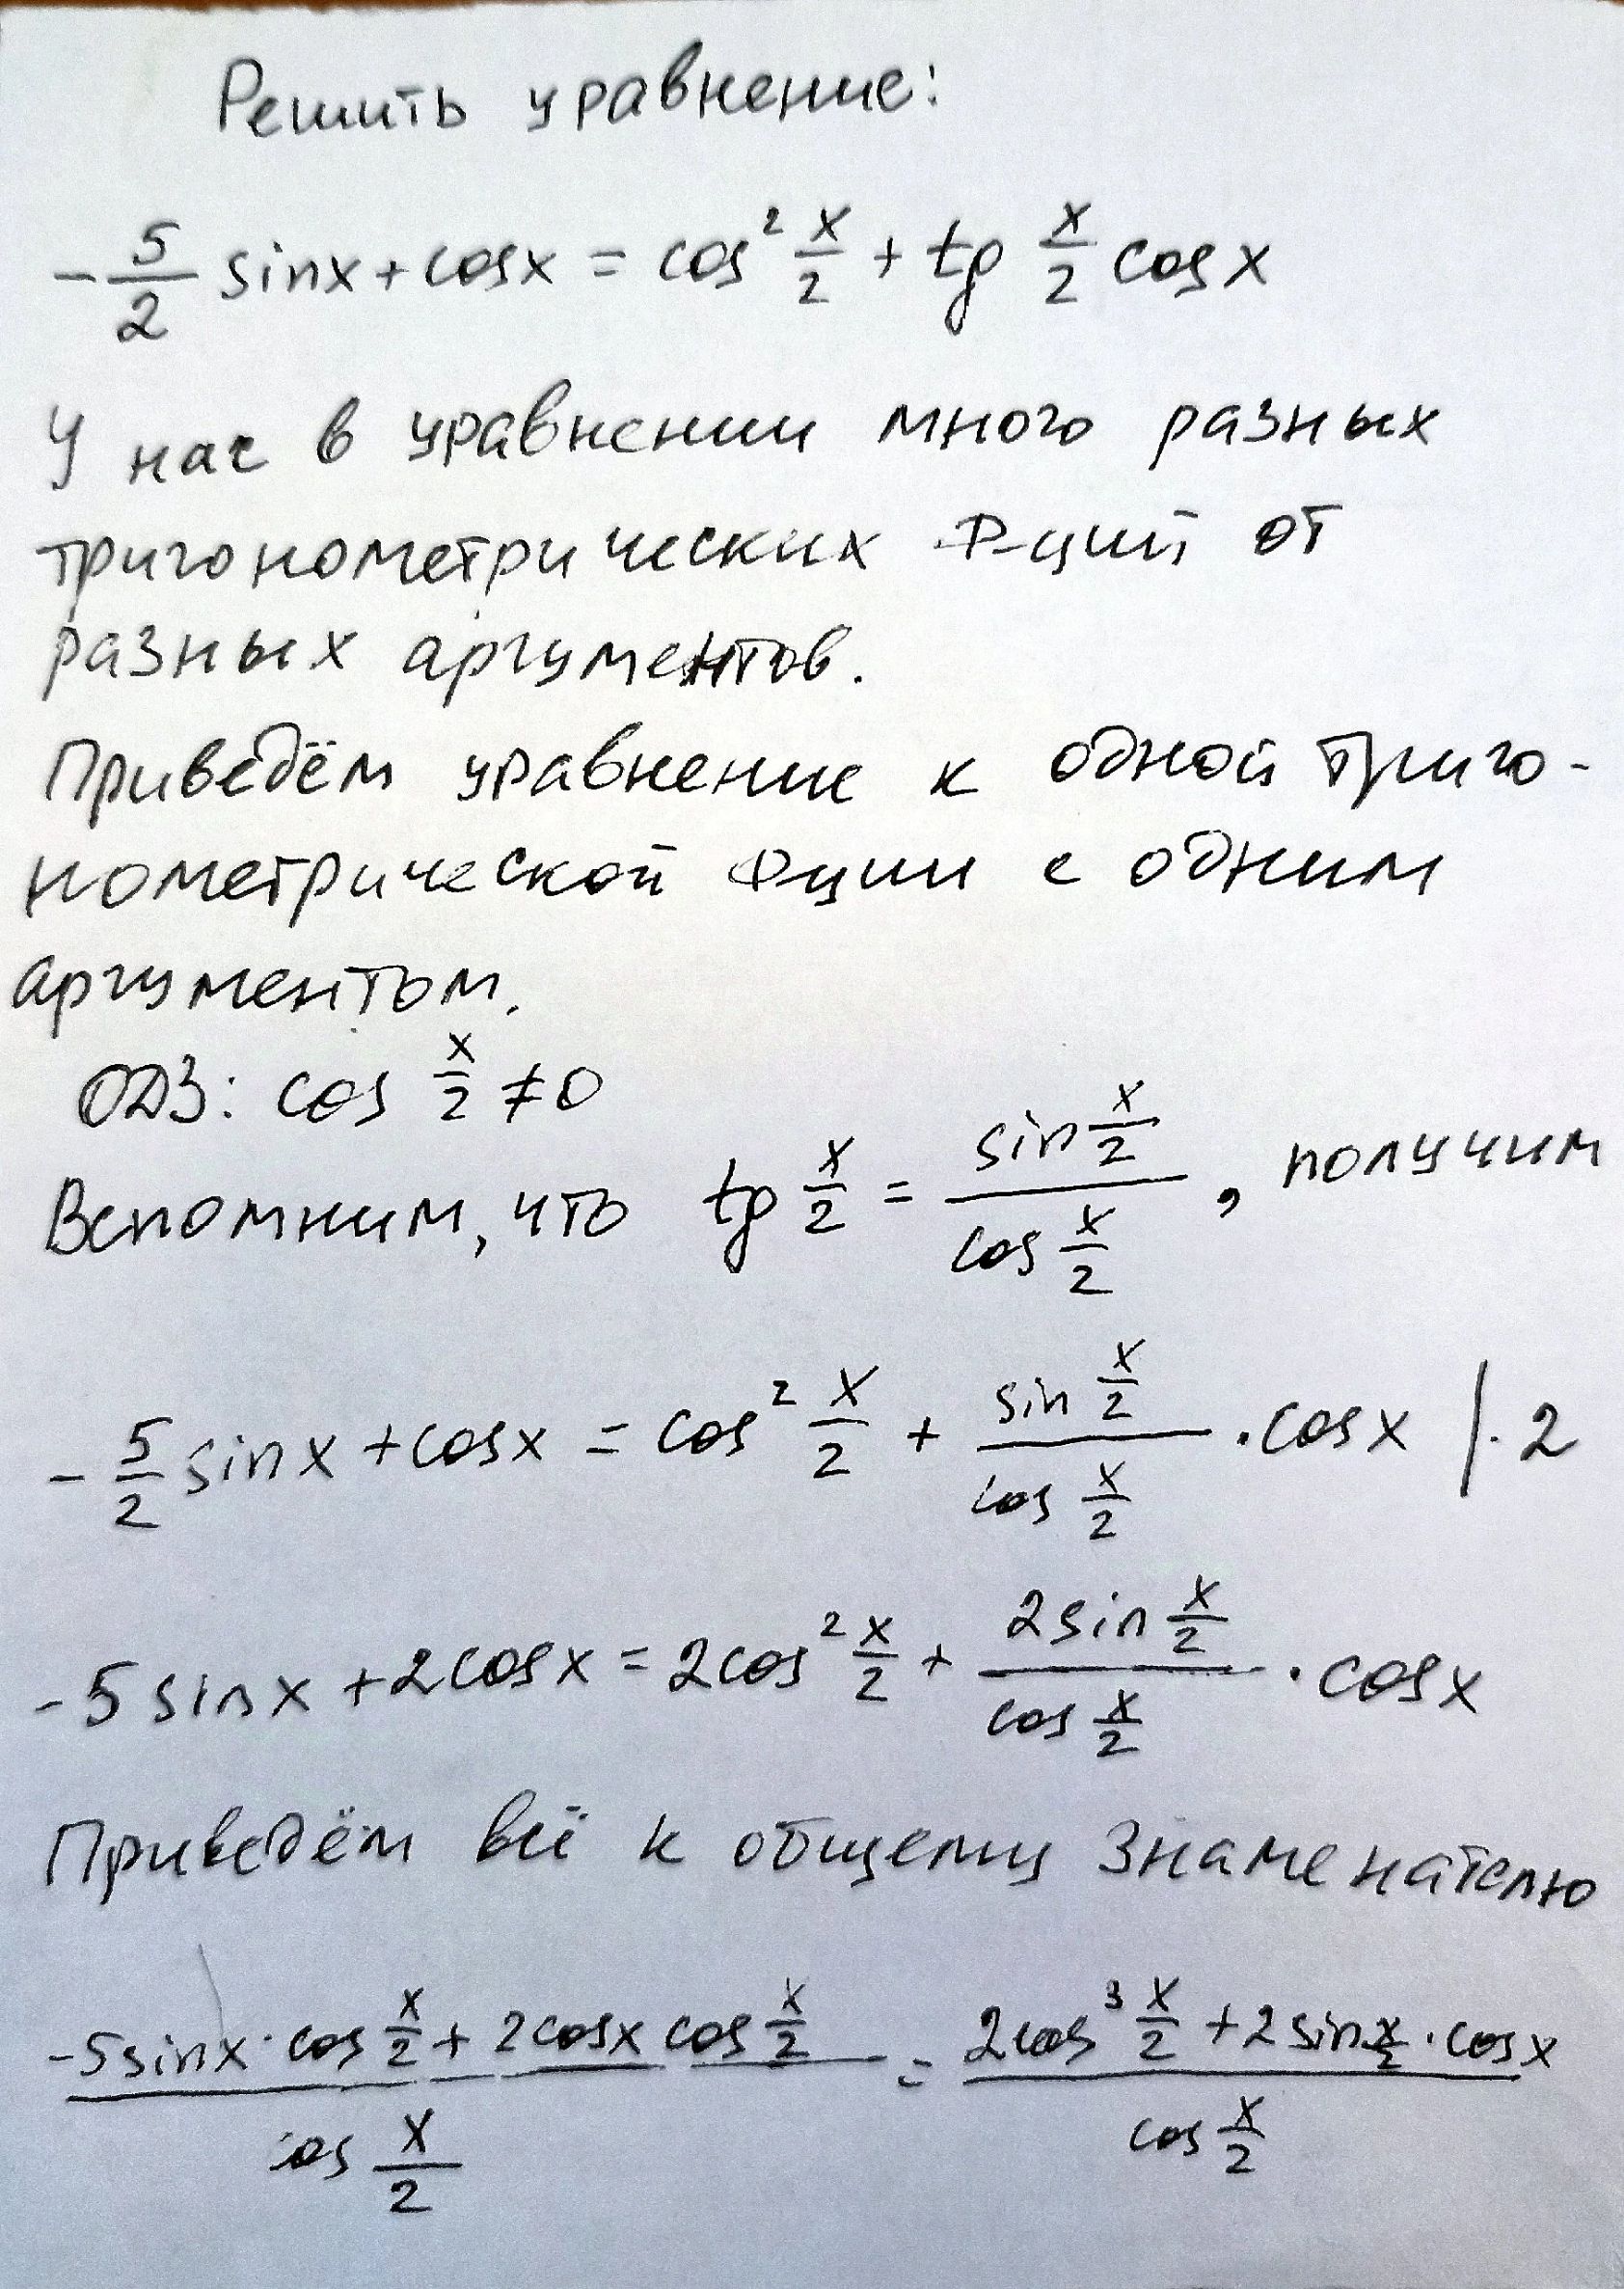 Решить уравнение:
-5/2 sinx + cosx = cos² x/2 + tg x/2 cosx
У нас в уравнении много разных
тригонометрических ф-ций от
разных аргументов.
Приведём уравнение к одной триго-
нометрической фции с одним
аргументом.
ОДЗ: cos x/2 ≠ 0
Вспомним, что tg x/2 = sin x/2 / cos x/2, получим
-5/2 sinx + cosx = cos² x/2 + sin x/2 / cos x/2 · cosx |· 2
-5 sinx + 2cosx = 2cos² x/2 + 2sin x/2 / cos x/2 · cosx
Приведём всё к общему знаменателю
(-5sinx · cos x/2 + 2cosx cos x/2) / cos x/2 = (2cos³ x/2 + 2sin x/2 · cosx) / cos x/2